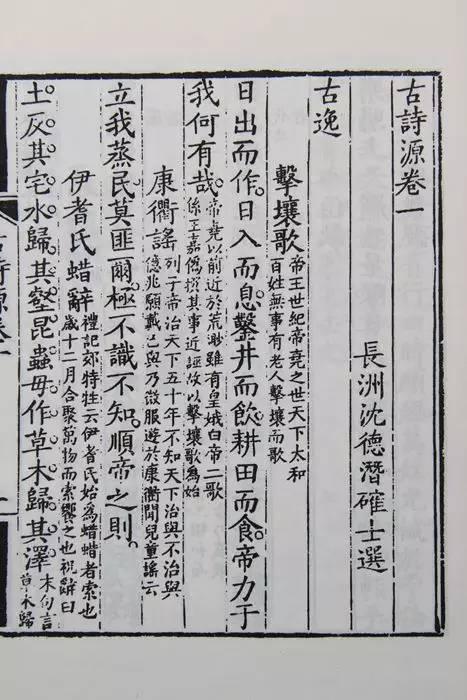 古詩源卷一
長洲沈德潛確士選
古逸
擊壤歌 帝王世紀帝堯之世天下太和
百姓無事有老人擊壤而歌
日出而作。日入而息。鑿井而飲。耕田而食。帝力于
我何有哉。帝堯以前近於荒渺雖有皇娥白帝二歌
係王嘉僞撰其事近誣故以擊壤歌爲始
康衢謠 列子帝治天下五十年不知天下治與不治與
億兆願戴己與乃微服遊於康衢聞兒童謠云
立我蒸民。莫匪爾極。不識不知。順帝之則。
伊耆氏蜡辭 禮記郊特牲云伊耆氏始爲蜡蜡者索也
歲十二月合聚萬物而索饗之也祝辭曰
土反其宅。水歸其壑。昆蟲毋作。草木歸其澤。末句言
草木歸
古詩源卷一